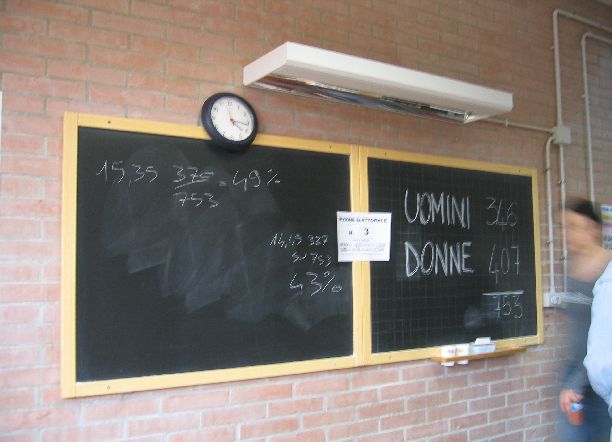 15,35 370 = 49%
753
14,15 327
SU 753
43%
SEZIONE ELETTORALE
N. 3
UOMINI 346
DONNE 407
753